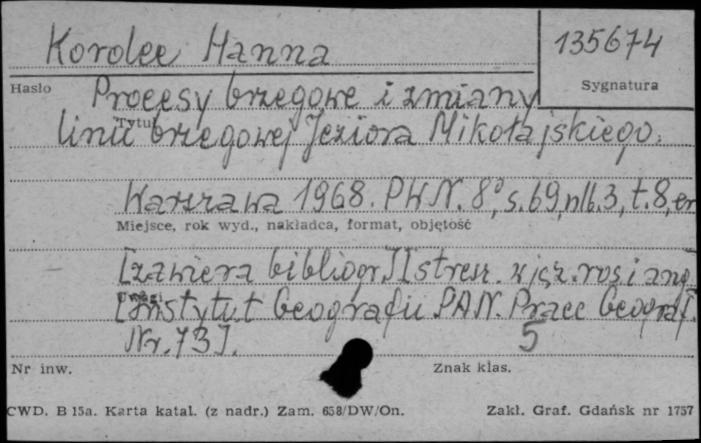 Korolec Hanna
135674
Hasło
Sygnatura
Procesy brzegowe i zmiany
Tytuł
linii brzegowej Jeziora Mikołajskiego.
Warszawa 1968. PWN. 8°, s. 69, nlb. 3, t. 8, err
Miejsce, rok wyd., nakładca, format, objętość
[zawiera bibliogr.] [stresz. w jęz. ros i ang.
Uwagi
[Instytut Geografii PAN. Prace Geograf.
Nr. 73].
5
Nr inw.
Znak klas.
CWD. B 15a. Karta katal. (z nadr.) Zam. 658/DW/On.
Zakł. Graf. Gdańsk nr 1757